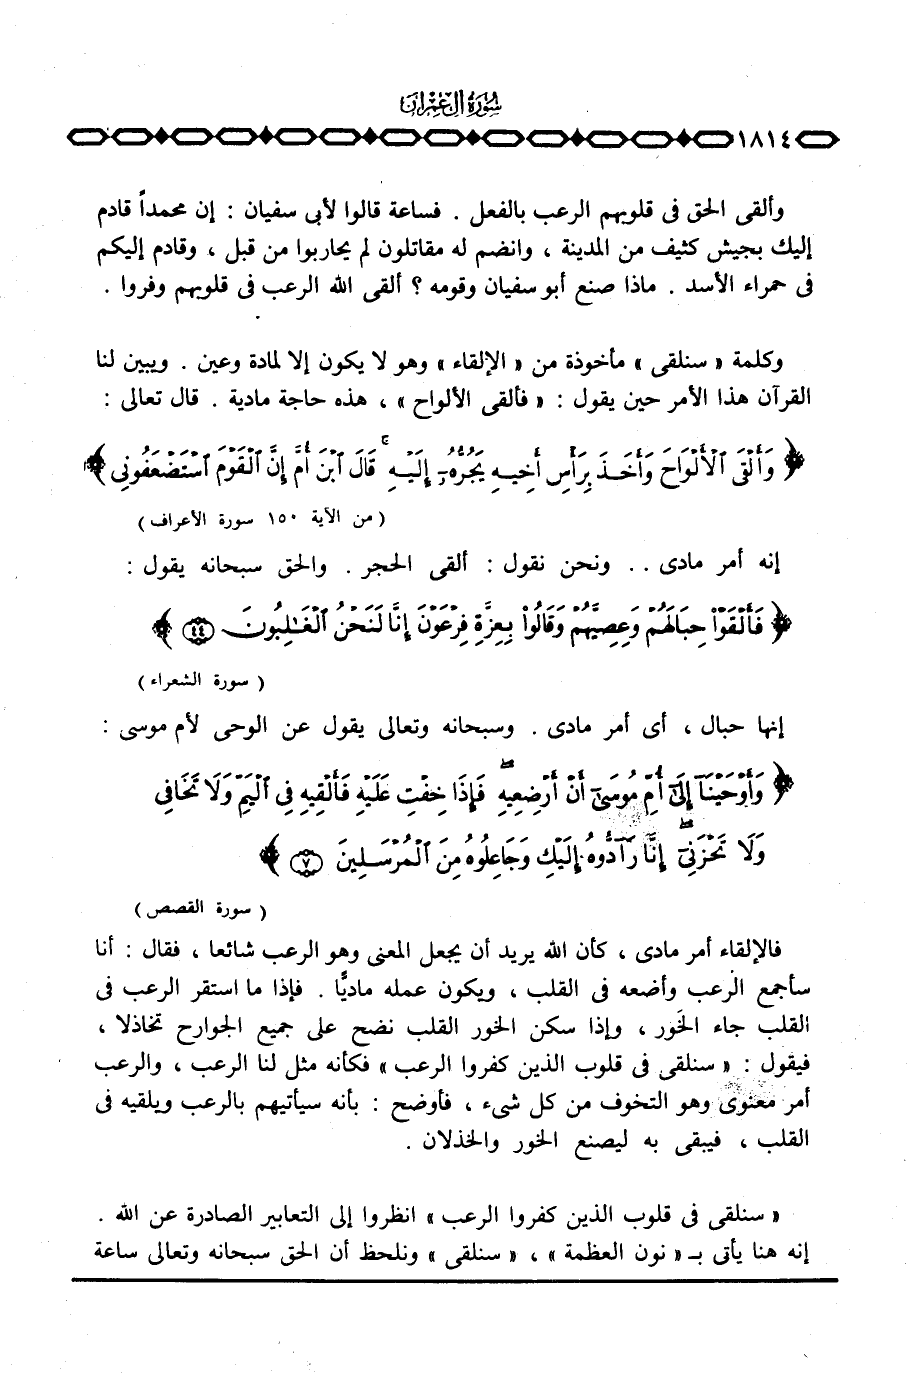 سورة آل عمران
١٨١٤
وألقى الحق فى قلوبهم الرعب بالفعل . فساعة قالوا لأبى سفيان : إن محمداً قادم
إليك بجيش كثيف من المدينة ، وانضم له مقاتلون لم يحاربوا من قبل ، وقادم إليكم
فى حمراء الأسد . ماذا صنع أبو سفيان وقومه ؟ ألقى الله الرعب فى قلوبهم وفروا .
وكلمة « سنلقى » مأخوذة من « الإلقاء » وهو لا يكون إلا لمادة وعين . ويبين لنا
القرآن هذا الأمر حين يقول : « فألقى الألواح » ، هذه حاجة مادية . قال تعالى :
﴿ وَأَلْقَى ٱلْأَلْوَاحَ وَأَخَذَ بِرَأْسِ أَخِيهِ يَجُرُّهُۥٓ إِلَيْهِ ۚ قَالَ ٱبْنَ أُمَّ إِنَّ ٱلْقَوْمَ ٱسْتَضْعَفُونِى ﴾
( من الآية ١٥٠ سورة الأعراف )
إنه أمر مادى . . ونحن نقول : ألقى الحجر . والحق سبحانه يقول :
﴿ فَأَلْقَوْا۟ حِبَالَهُمْ وَعِصِيَّهُمْ وَقَالُوا۟ بِعِزَّةِ فِرْعَوْنَ إِنَّا لَنَحْنُ ٱلْغَـٰلِبُونَ ٤٤ ﴾
( سورة الشعراء )
إنها حبال ، أى أمر مادى . وسبحانه وتعالى يقول عن الوحى لأم موسى :
﴿ وَأَوْحَيْنَآ إِلَىٰٓ أُمِّ مُوسَىٰٓ أَنْ أَرْضِعِيهِ ۖ فَإِذَا خِفْتِ عَلَيْهِ فَأَلْقِيهِ فِى ٱلْيَمِّ وَلَا تَخَافِى
وَلَا تَحْزَنِىٓ ۖ إِنَّا رَآدُّوهُ إِلَيْكِ وَجَاعِلُوهُ مِنَ ٱلْمُرْسَلِينَ ٧ ﴾
( سورة القصص )
فالإلقاء أمر مادى ، كأن الله يريد أن يجعل المعنى وهو الرعب شائعا ، فقال : أنا
سأجمع الرعب وأضعه فى القلب ، ويكون عمله ماديًّا . فإذا ما استقر الرعب فى
القلب جاء الخَور ، وإذا سكن الخور القلب نضح على جميع الجوارح تخاذلا ،
فيقول : « سنلقى فى قلوب الذين كفروا الرعب » فكأنه مثل لنا الرعب ، والرعب
أمر معنوى وهو التخوف من كل شىء ، فأوضح : بأنه سيأتيهم بالرعب ويلقيه فى
القلب ، فيبقى به ليصنع الخور والخذلان .
« سنلقى فى قلوب الذين كفروا الرعب » انظروا إلى التعابير الصادرة عن الله .
إنه هنا يأتى بـ « نون العظمة » ، « سنلقى » ونلحظ أن الحق سبحانه وتعالى ساعة